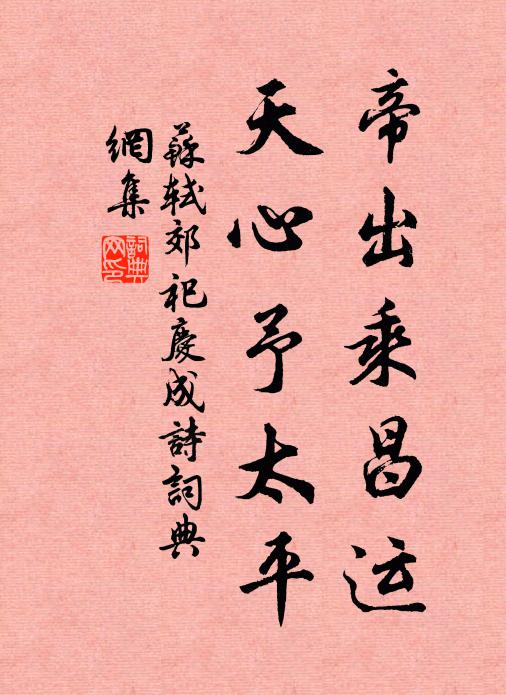 帝出乘昌运
天心予太平
蘇軾郊祀慶成詩詞典
網集
詞典網印